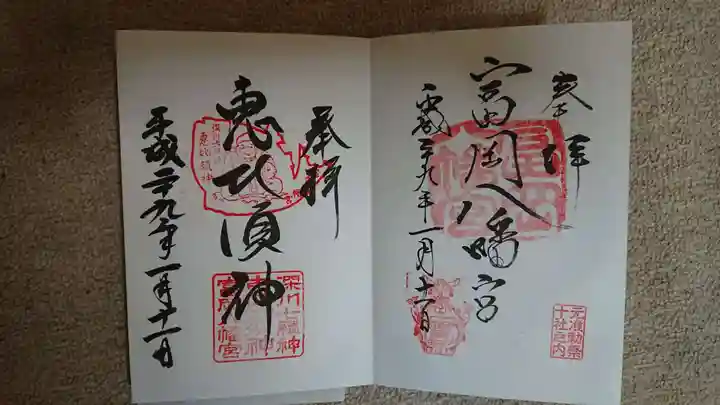 奉拝
富岡八幡宮
平成二十九年一月十一日
元准勅祭
十社之内
奉拝
恵比須神
平成二十九年一月十一日
深川七福神
富岡八幡宮